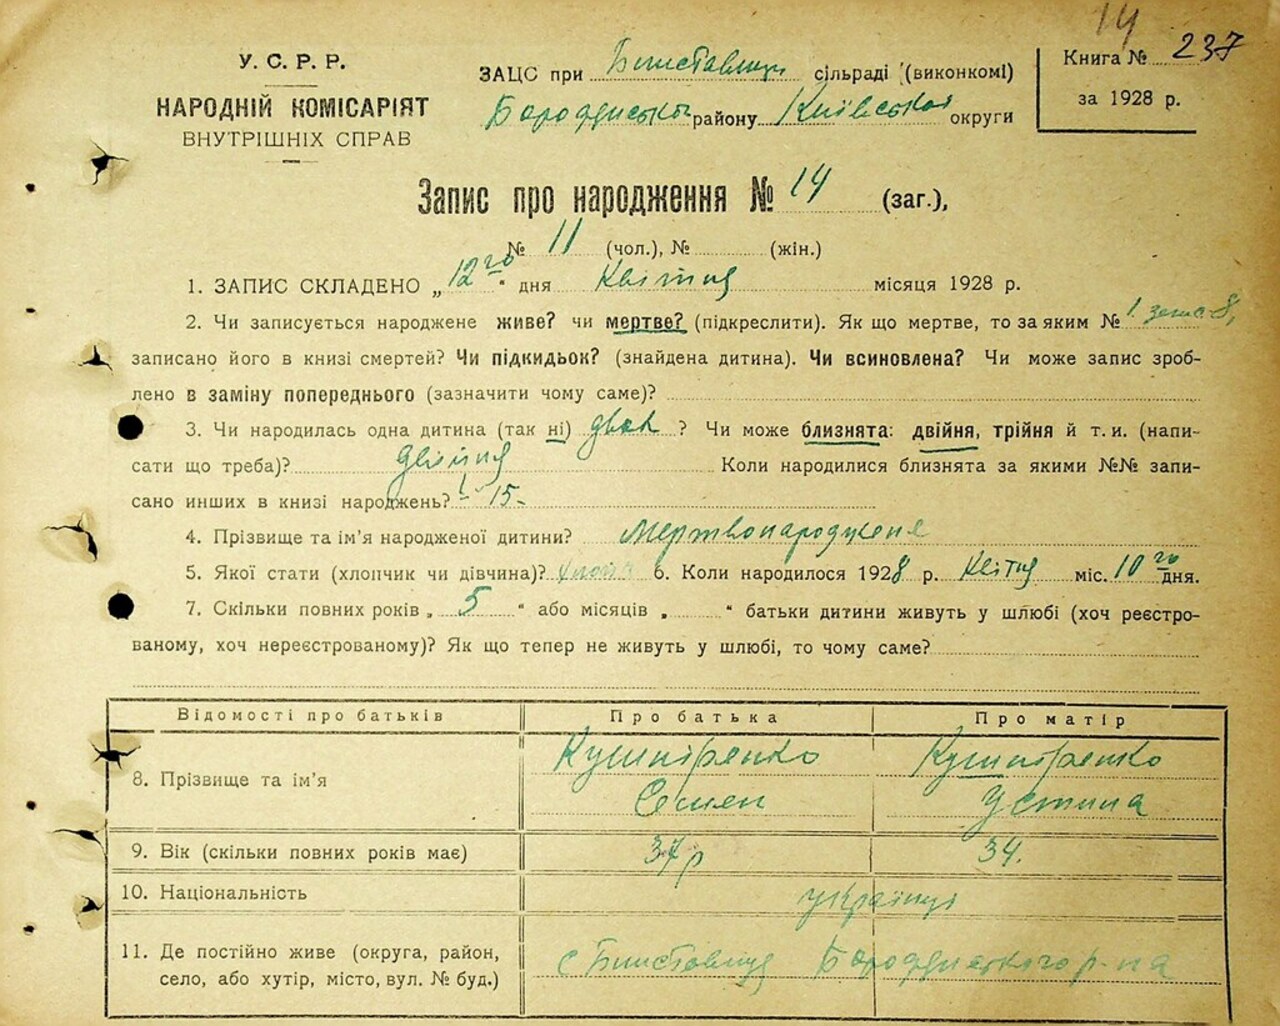 14
237
У. С. Р. Р.
НАРОДНІЙ КОМІСАРІЯТ
ВНУТРІШНІХ СПРАВ
ЗАЦС при сільраді (виконкомі)
району Київської округи
Книга №
за 1928 р.
Запис про народження № 14 (заг.),
№ 11 (чол.), № (жін.)
1. ЗАПИС СКЛАДЕНО „12го“ дня Квітня місяця 1928 р.
2. Чи записується народжене живе? чи мертве? (підкреслити). Як що мертве, то за яким № 1
записано його в книзі смертей? Чи підкидьок? (знайдена дитина). Чи всиновлена? Чи може запис зроб-
лено в заміну попереднього (зазначити чому саме)?
3. Чи народилась одна дитина (так ні) двох ? Чи може близнята: двійня, трійня й т. и. (напи-
сати що треба)? двійня Коли народилися близнята за якими №№ запи-
сано инших в книзі народжень? 15-
4. Прізвище та ім'я народженої дитини? Мертвонароджене
5. Якої стати (хлопчик чи дівчина)? 6. Коли народилося 1928 р. Квітня міс. 10го дня.
7. Скільки повних років „ 5 “ або місяців „ “ батьки дитини живуть у шлюбі (хоч реєстро-
ваному, хоч нереєстрованому)? Як що тепер не живуть у шлюбі, то чому саме?
Відомості про батьків Про батька Про матір
8. Прізвище та ім'я Кушніренко Семен Кушніренко Устина
9. Вік (скільки повних років має) 37 р 34.
10. Національність українці
11. Де постійно живе (округа, район,
село, або хутір, місто, вул. № буд.) с р-на